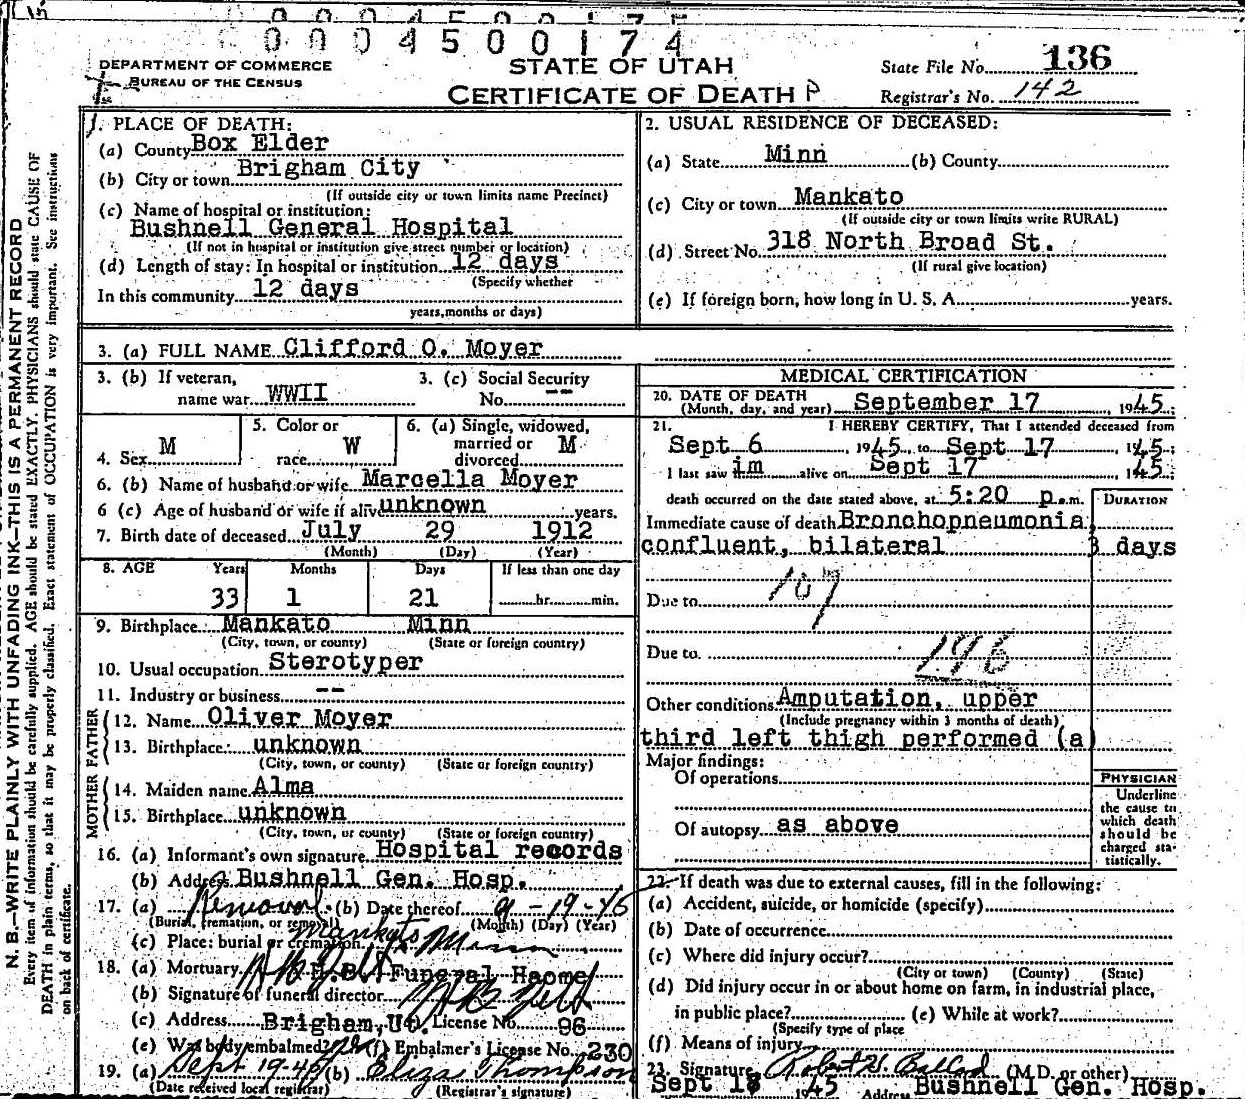 0004500174
DEPARTMENT OF COMMERCE
BUREAU OF THE CENSUS
STATE OF UTAH
CERTIFICATE OF DEATH P
State File No. 136
Registrar's No. 142
N. B.—WRITE PLAINLY WITH UNFADING INK—THIS IS A PERMANENT RECORD
Every item of information should be carefully supplied. AGE should be stated EXACTLY. PHYSICIANS should state CAUSE OF
DEATH in plain terms, so that it may be properly classified. Exact statement of OCCUPATION is very important. See instructions
on back of certificate.
1. PLACE OF DEATH:
(a) County Box Elder
(b) City or town Brigham City
(If outside city or town limits name Precinct)
(c) Name of hospital or institution:
Bushnell General Hospital
(If not in hospital or institution give street number or location)
(d) Length of stay: In hospital or institution 12 days
(Specify whether
In this community 12 days
years, months or days)
2. USUAL RESIDENCE OF DECEASED:
(a) State Minn (b) County
(c) City or town Mankato
(If outside city or town limits write RURAL)
(d) Street No. 318 North Broad St.
(If rural give location)
(e) If foreign born, how long in U. S. A. years.
3. (a) FULL NAME Clifford O. Moyer
3. (b) If veteran, name war WWII
3. (c) Social Security No. --
4. Sex M
5. Color or race W
6. (a) Single, widowed, married or divorced M
6. (b) Name of husband or wife Marcella Moyer
6 (c) Age of husband or wife if alive unknown years.
7. Birth date of deceased July 29 1912
(Month) (Day) (Year)
8. AGE Years Months Days If less than one day
33 1 21 hr. min.
9. Birthplace Mankato Minn
(City, town, or county) (State or foreign country)
10. Usual occupation Sterotyper
11. Industry or business --
FATHER
12. Name Oliver Moyer
13. Birthplace unknown
(City, town, or county) (State or foreign country)
MOTHER
14. Maiden name Alma
15. Birthplace unknown
(City, town, or county) (State or foreign country)
16. (a) Informant's own signature Hospital records
(b) Address Bushnell Gen. Hosp.
17. (a) Removal (b) Date thereof 9-19-45
(Burial, cremation, or removal) (Month) (Day) (Year)
(c) Place: burial or cremation Mankato Minn
18. (a) Mortuary Funeral Haome
(b) Signature of funeral director
(c) Address Brigham, Ut. License No. 96
(e) Was body embalmed? yes (f) Embalmer's License No. 230
19. (a) Sept 19-45 (b) Eliza Thompson
(Date received local registrar) (Registrar's signature)
MEDICAL CERTIFICATION
20. DATE OF DEATH
(Month, day, and year) September 17, 1945.
21. I HEREBY CERTIFY, That I attended deceased from
Sept 6, 1945, to Sept 17, 1945;
I last saw im alive on Sept 17 1945;
death occurred on the date stated above, at 5:20 p.m.
DURATION
Immediate cause of death Bronchopneumonia,
confluent, bilateral 3 days
Due to 107
Due to
196
Other conditions Amputation, upper
(Include pregnancy within 3 months of death)
third left thigh performed (a)
Major findings:
Of operations
Of autopsy as above
PHYSICIAN
Underline
the cause to
which death
should be
charged sta-
tistically.
22. If death was due to external causes, fill in the following:
(a) Accident, suicide, or homicide (specify)
(b) Date of occurrence
(c) Where did injury occur?
(City or town) (County) (State)
(d) Did injury occur in or about home on farm, in industrial place,
in public place? (e) While at work?
(Specify type of place
(f) Means of injury
23. Signature Robert W. Ballad (M.D. or other)
Sept 18 1945 Address Bushnell Gen. Hosp.